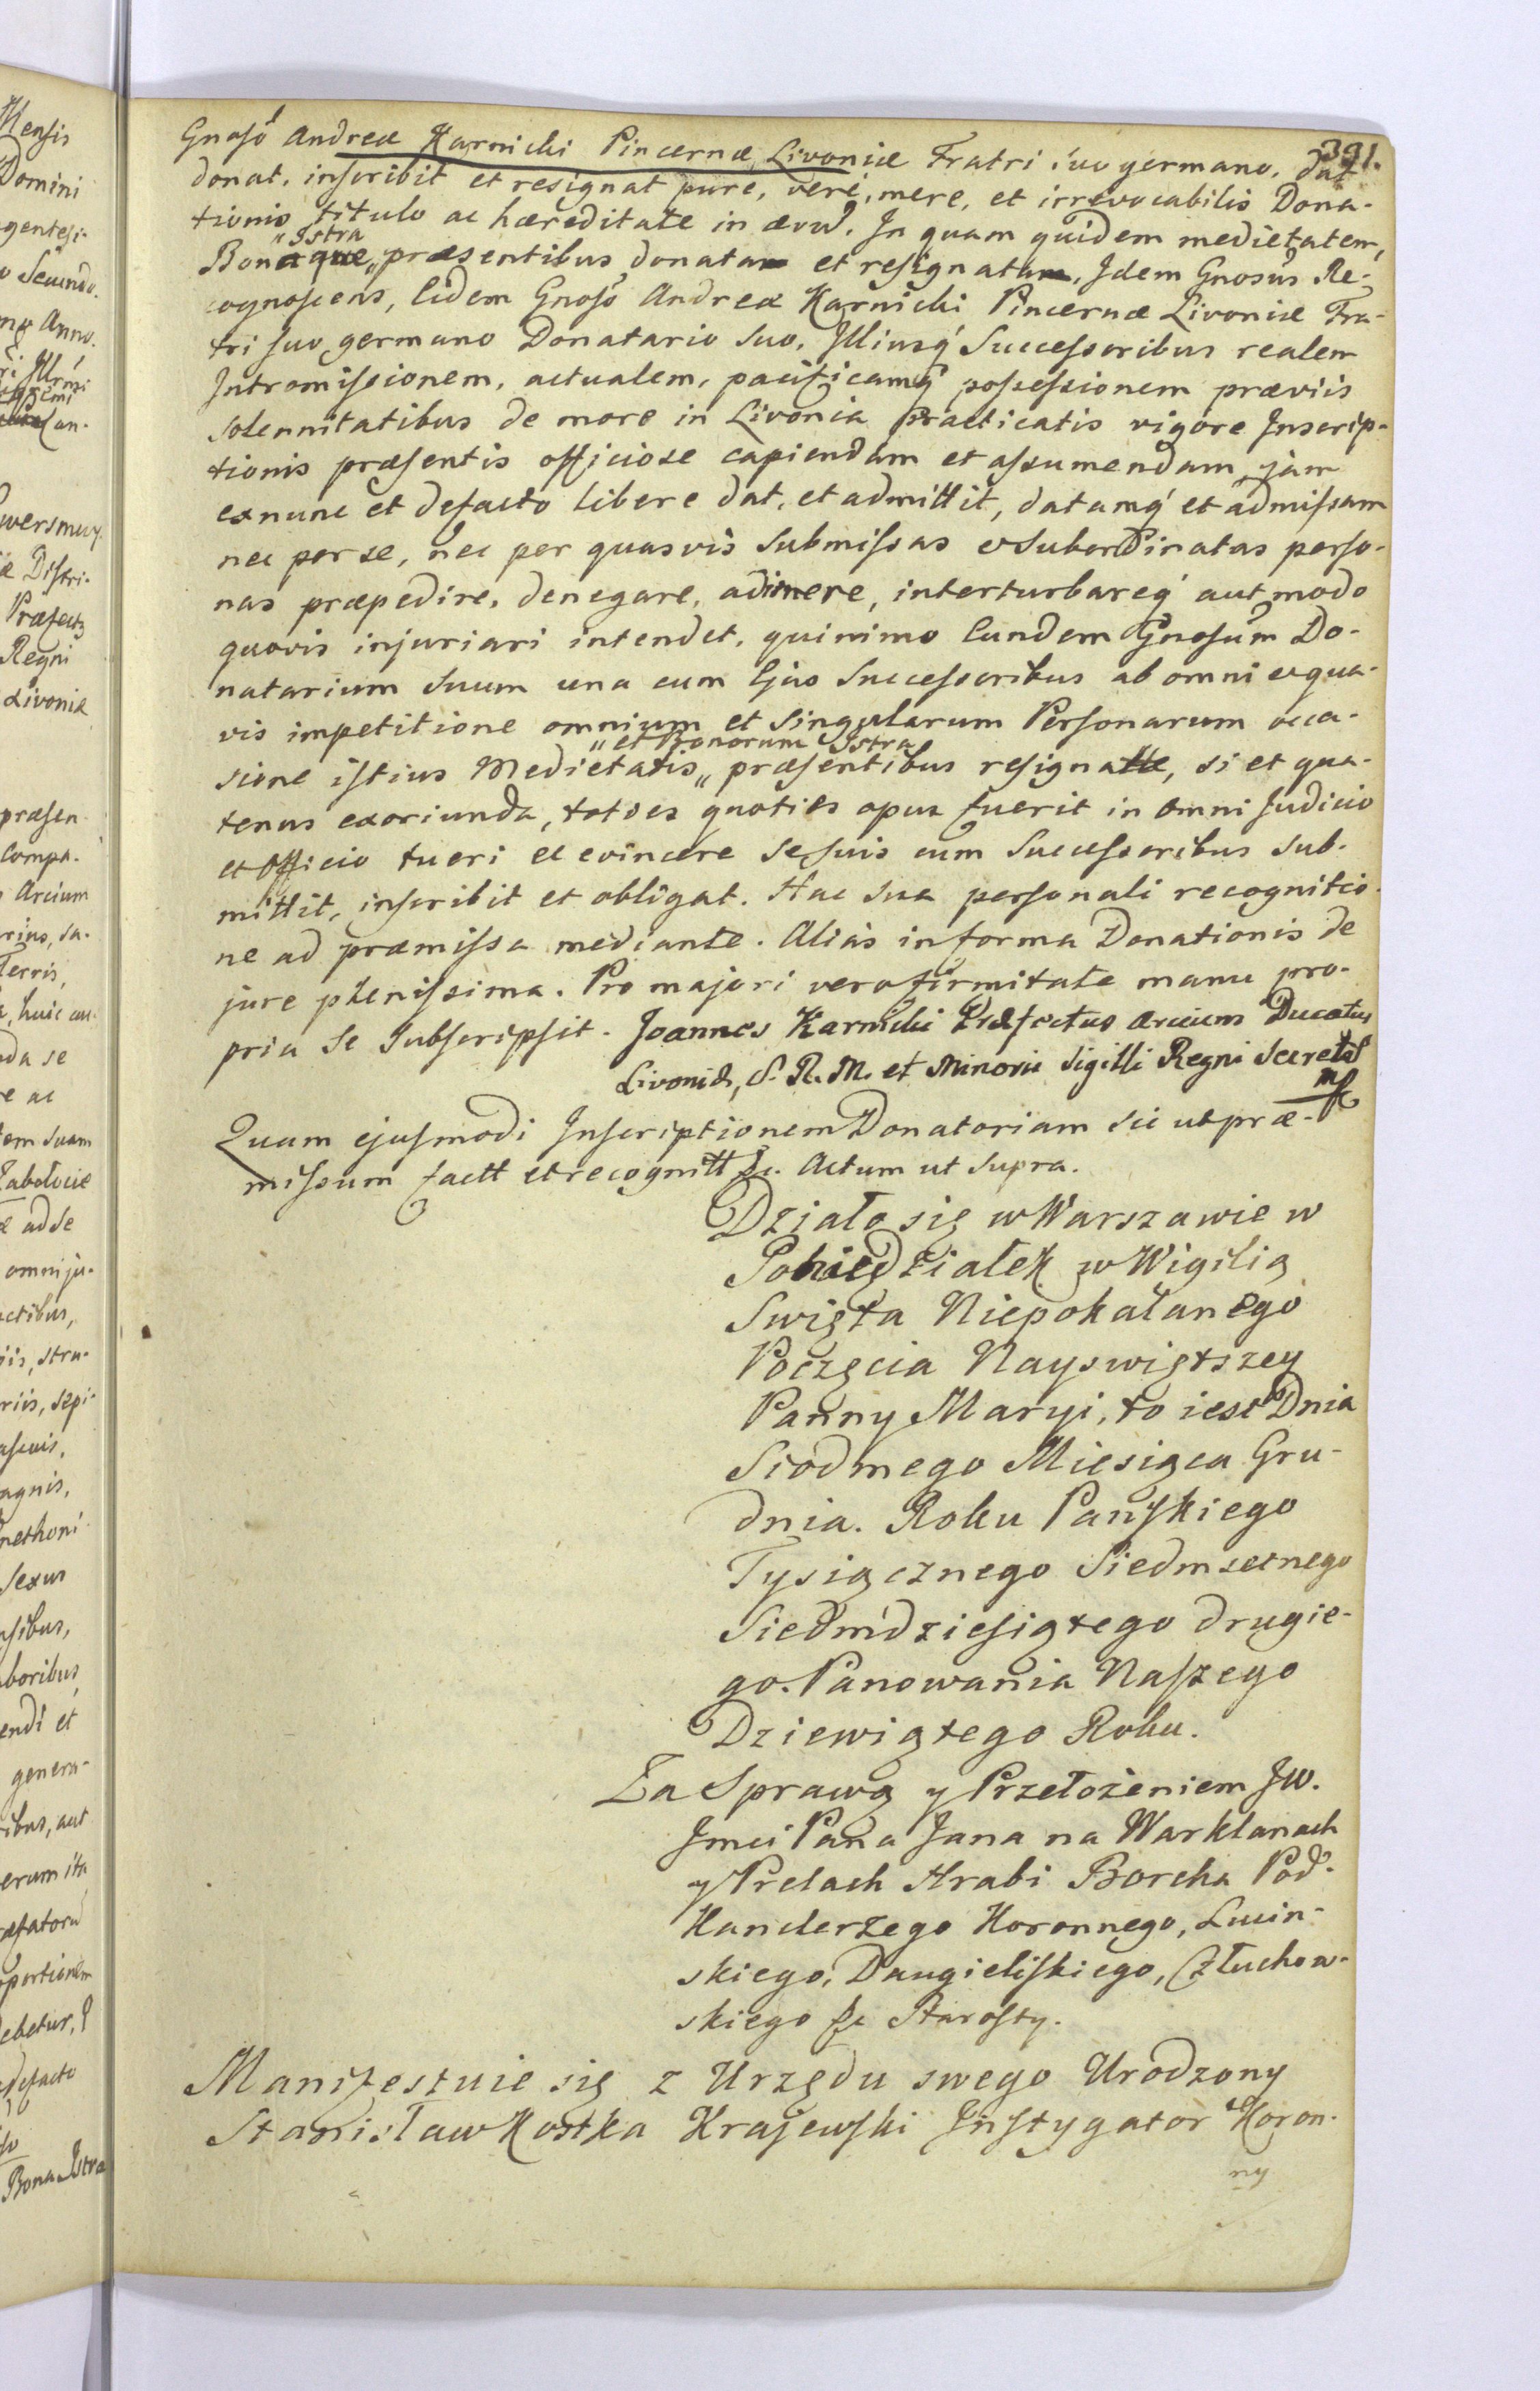 391.
Gnoso Andreæ Karnicki Pincernæ Livoniæ Fratri suo germano, dat
donat, inscribit et resignat pure, vere, mere, et irrevocabilis Dona-
tionis titulo ac hæreditate in ævũ. In quam quidem medietatem,
"Istra
Bonaque „ præsentibus donata et resignata, Idem Gnosus Re-
cognoscens, Eidem Gnoso Andreæ Karnicki Pincernæ Livoniæ Fra-
tri suo germano Donatario suo, Illiusq' Successoribus realem
Intromissionem, actualem, pacificamq' possessionem præviis
solennitatibus de more in Livonia practicatis vigore Inscrip-
tionis præsentis officiose capiendam et assumendam jam
exnunc et defacto libere dat, et admittit, datamq' et admissam
nec per se, nec per quasvis submissas et subordinatas perso-
nas præpedire, denegare, adimere, interturbareq' aut modo
quovis injuriari intendet, quinimo Eundem Gnosum Do-
natarium suum una cum Ejus Successoribus ab omni et qua-
vis impetitione omnium et singularum Personarum occa-
"et Bonorum Istra
sione istius Medietatis „ præsentibus resignatæ, si et qua-
tenus exoriunda, toties quoties opus fuerit in omni Judicio
et Officio tueri et evincere se suis cum Successoribus sub-
mittit, inscribit et obligat. Hac sua personali recognitio-
ne ad præmissa mediante. Alias in forma Donationis de
jure plenissima. Pro majori vero firmitate manu pro-
pria se subscripsit. Joannes Karnicki Præfectus Arcium Ducatus
Livoniæ, S. R. M. et Minoris Sigilli Regni Secretař
mp
Quam ejusmodi Inscriptionem Donatoriam sic ut præ-
missum factt et recognitt &c. Actum ut supra.
Działo się w Warszawie w
Poniedziałek w Wigilią
Swięta Niepokalanego
Poczęcia Nayswiętszey
Panny Maryi, to iest Dnia
Siodmego Miesiąca Gru-
dnia. Roku Pańskiego
Tysiącznego Siedmsetnego
Siedmdziesiątego drugie-
go. Panowania Naszego
Dziewiątego Roku.
Za Sprawą y Przełożeniem JW.
Jmci Pana Jana na Warklanach
y Prelach Hrabi Borcha Pod-
Kanclerzego Koronnego, Lucin-
skiego, Daugieliskiego, Człuchow-
skiego &c Starosty.
Manifestuie się z Urzędu swego Urodzony
Stanisław Kostka Krajewski Instygator Koron-
ny